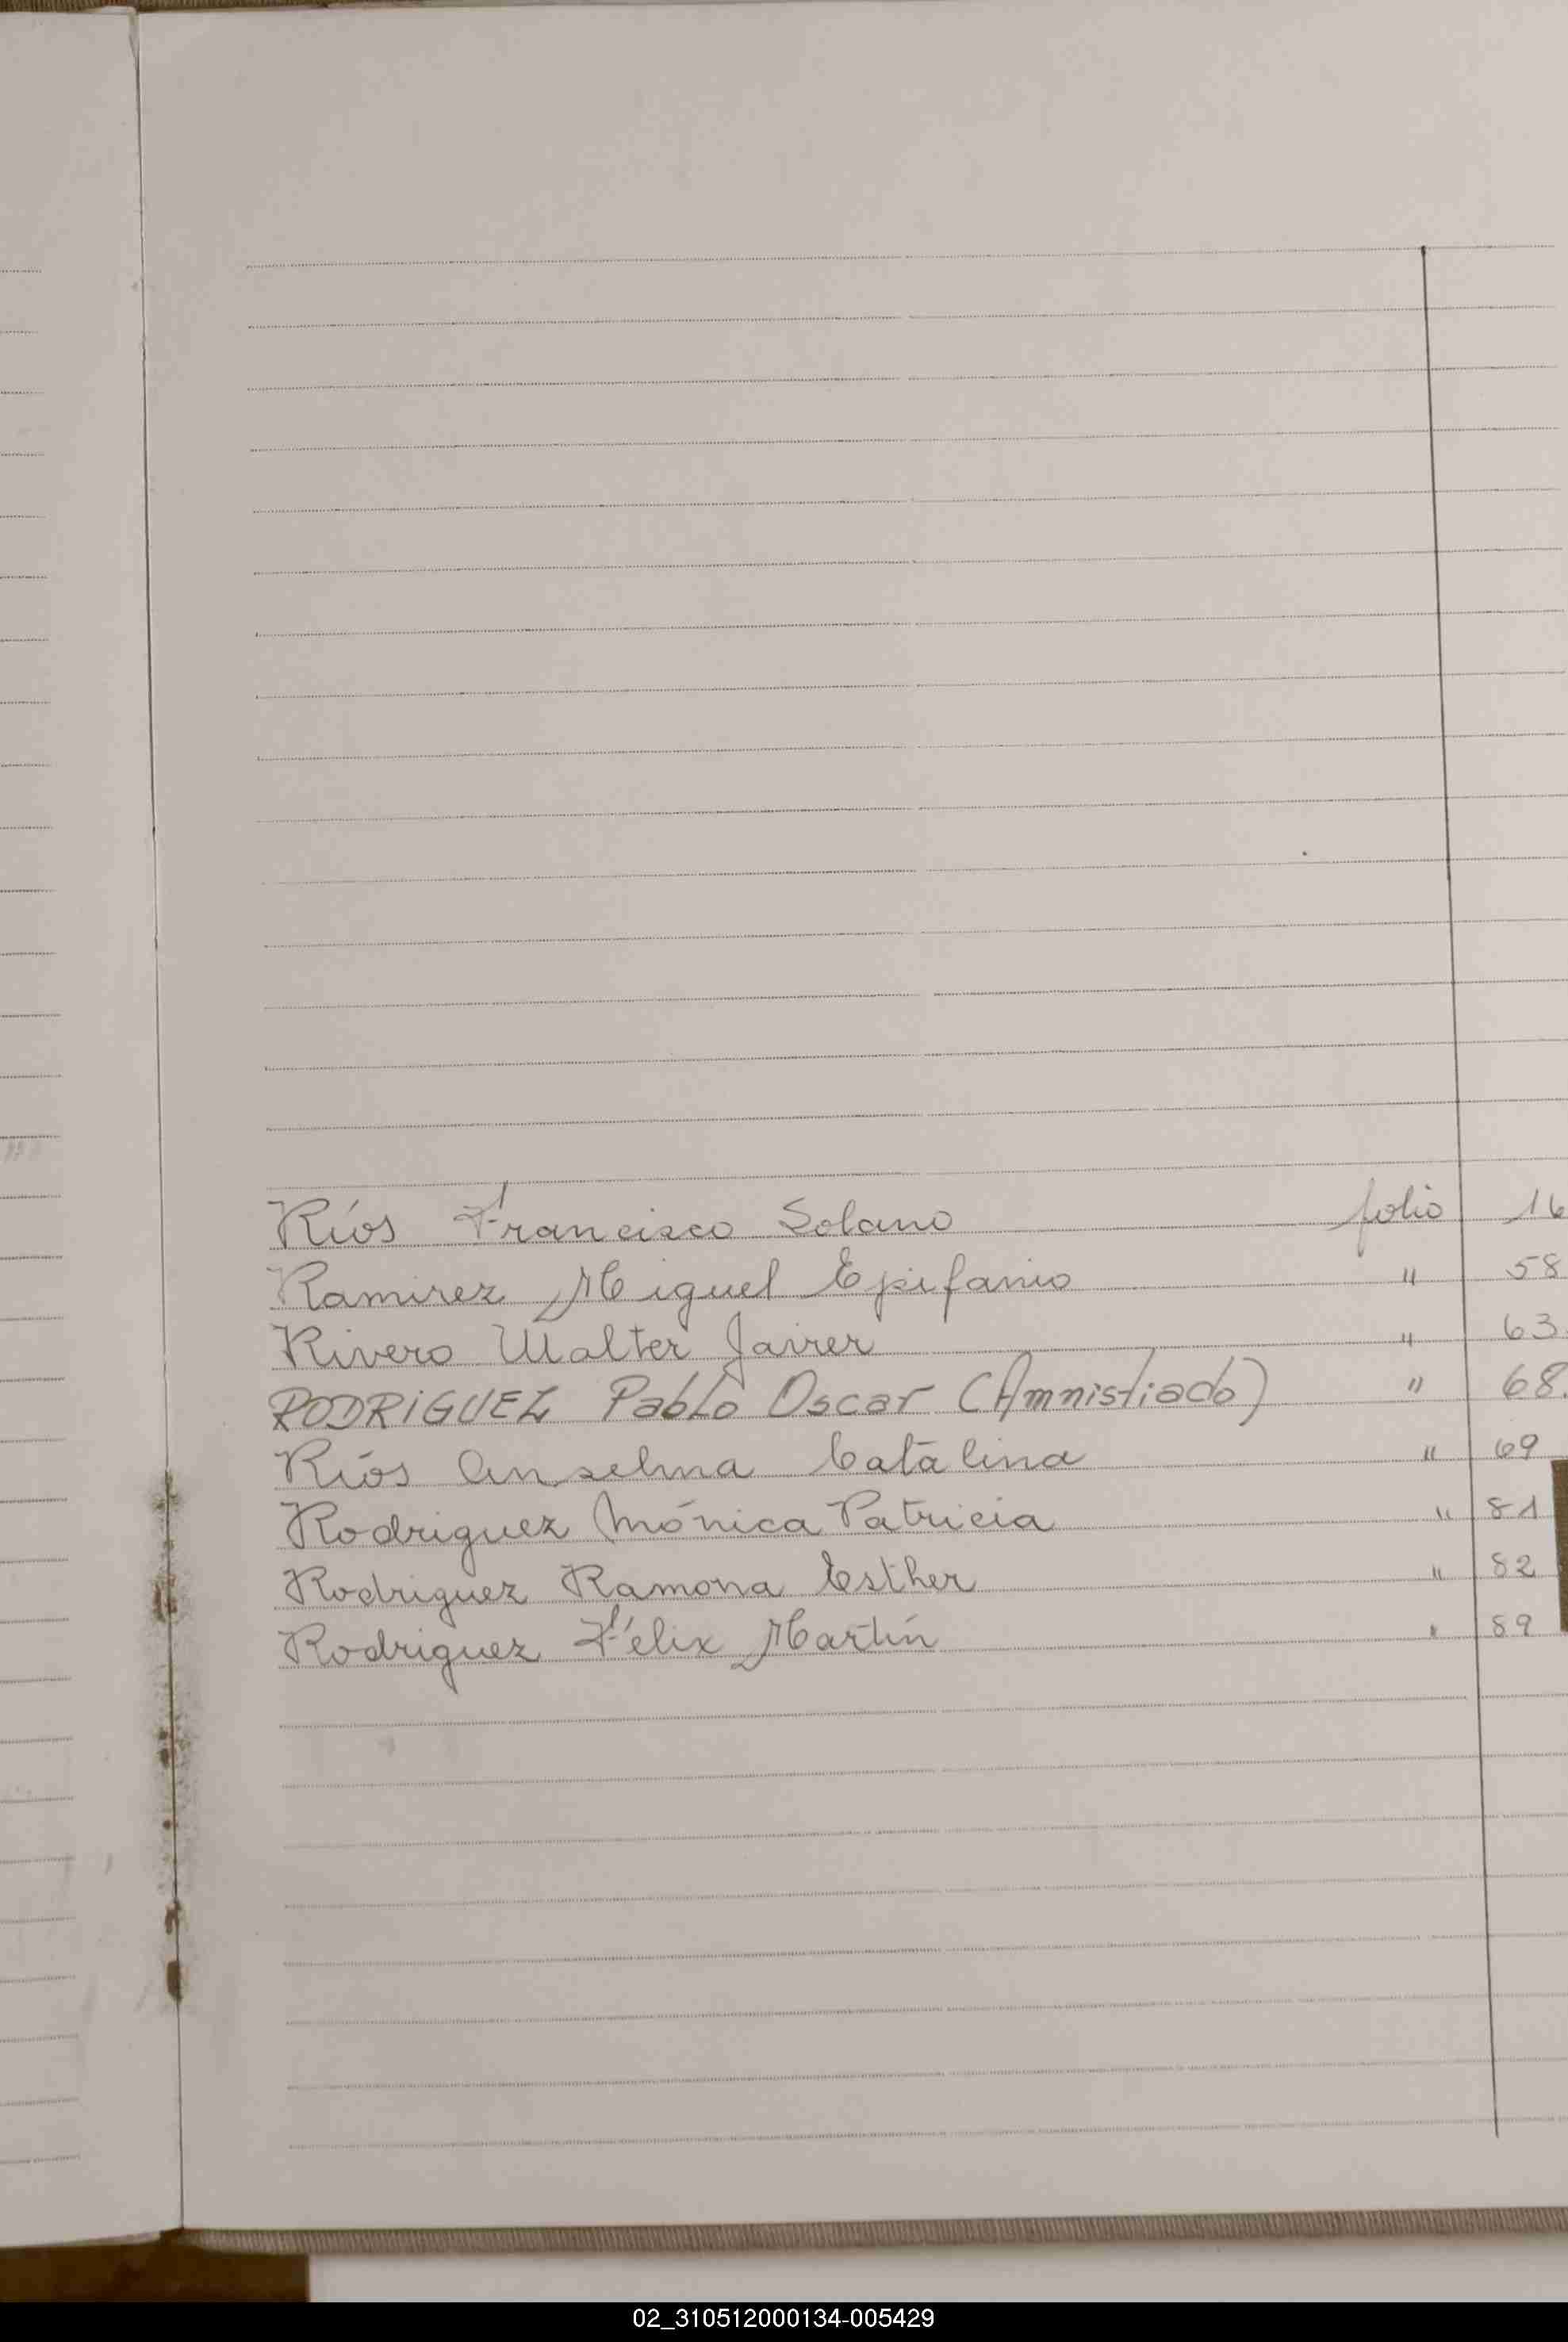 Ríos Francisco Solano folio 16
Ramirez Miguel Epifanio " 58
Rivero Walter Javier " 63.
RODRIGUEZ Pablo Oscar (Amnistiado) " 68.
Ríos Anselma Catalina " 69
Rodriguez Mónica Patricia " 81
Rodriguez Ramona Esther " 82
Rodriguez Félix Martín " 89
02_310512000134-005429